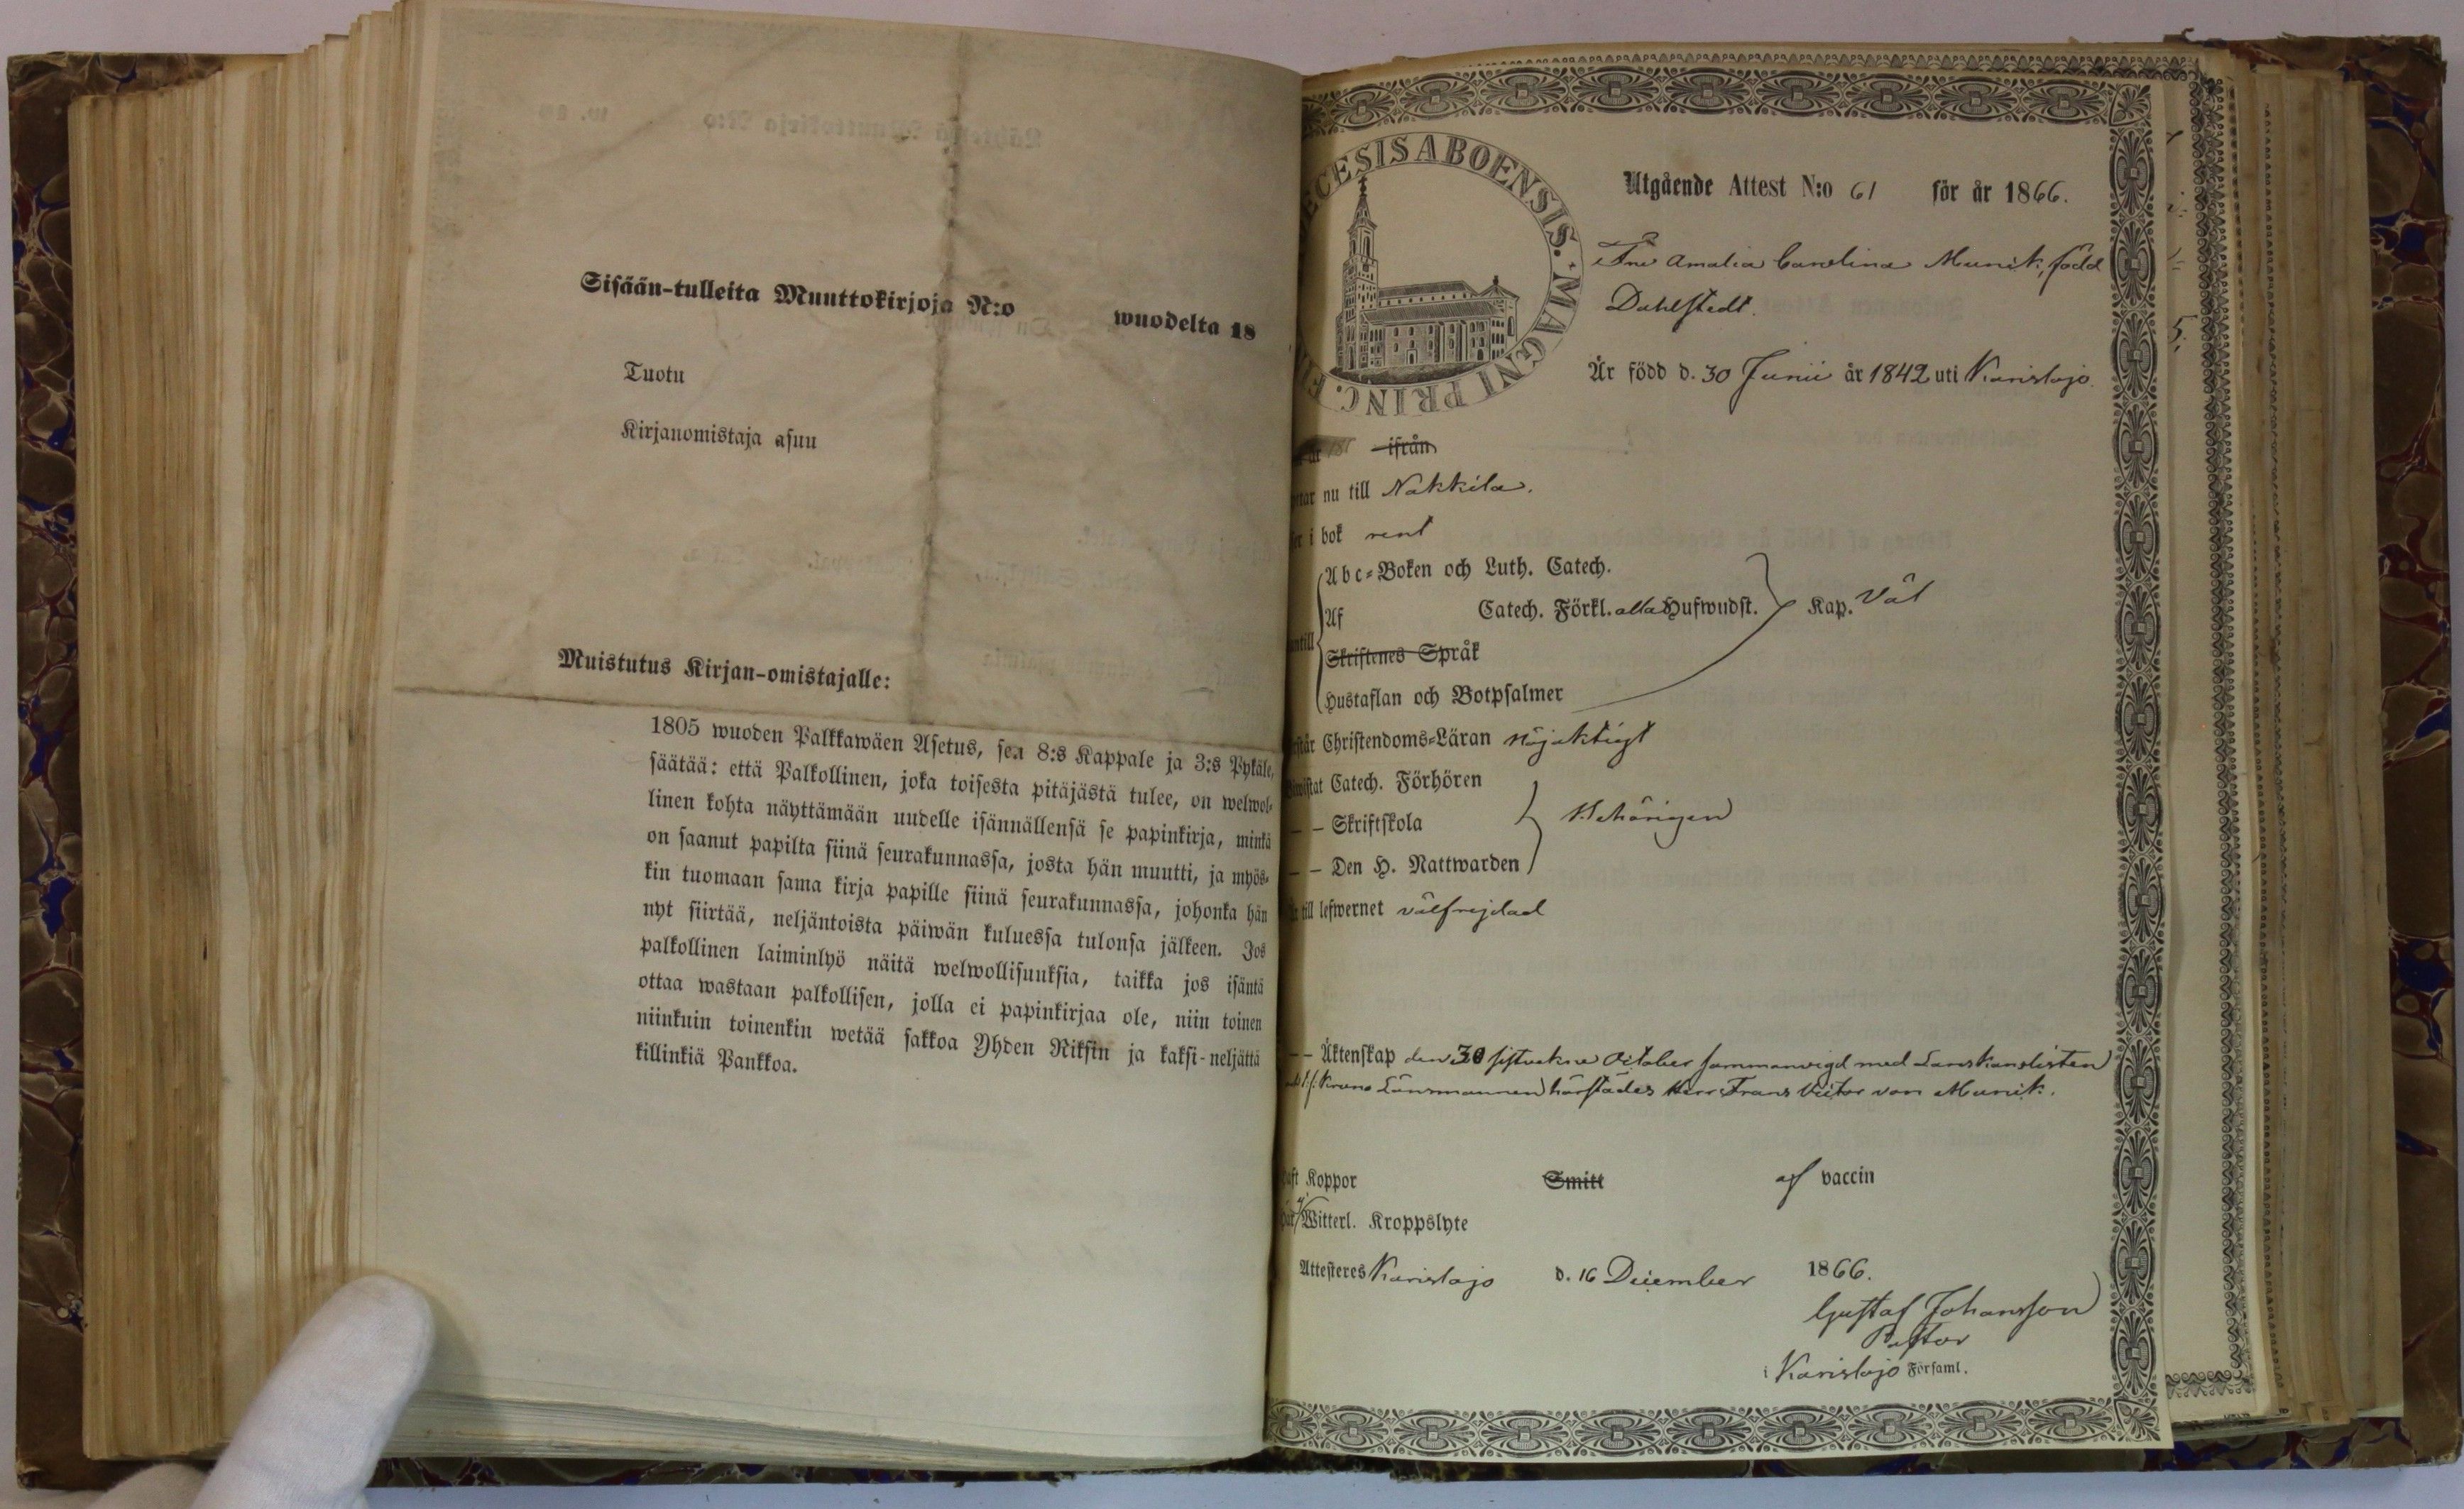 Sisään-tulleita Muuttokirjoja N:o wuodelta 18
Tuotu
Kirjanomistaja asuu
Muistutus Kirjan-omistajalle:
1805 wuoden Palkkawäen Asetus, sen 8:s Kappale ja 3:s Pykäle,
säätää: että Palkollinen, joka toisesta pitäjästä tulee, on welwol-
linen kohta näyttämään uudelle isännällensä se papinkirja, minkä
on saanut papilta siinä seurakunnassa, josta hän muutti, ja myös-
kin tuomaan sama kirja papille siinä seurakunnassa, johonka hän
nyt siirtää, neljäntoista päiwän kuluessa tulonsa jälkeen. Jos
palkollinen laiminlyö näitä welwollisuuksia, taikka jos isäntä
ottaa wastaan palkollisen, jolla ei papinkirjaa ole, niin toinen
niinkuin toinenkin wetää sakkoa Yhden Riksin ja kaksi-neljättä
killinkiä Pankkoa.
ECESIS ABOENSIS. MAGNI PRINC. F
Utgående Attest N:o 61 för år 1866.
Fru Amalia Carolina Munck, född
Dahlstedt.
Är född d. 30 Junii år 1842 uti Karislojo.
ifrån
nu till Nakkila.
i bok rent
Abc-Boken och Luth. Catech.
Af Catech. Förkl. alla Hufwudst. Kap. Väl
Skriftenes Språk
Hustaflan och Botpsalmer
Christendoms-Läran nöjaktigt
Catech. Förhören
– – Skriftskola Behörigen
– – Den H. Nattwarden
till lefwernet välfrejdad
– – Äktenskap den 30 sistvekne October sammanvigd med Lanskanslisten
Krono Länsmannen härstädes Herr Frans Victor von Munck.
Koppor Smitt af vaccin
Witterl. Kroppslyte
Attesteres Karislojo d. 16 December 1866.
Gustaf Johansson
Pastor
i Karislojo Församl.